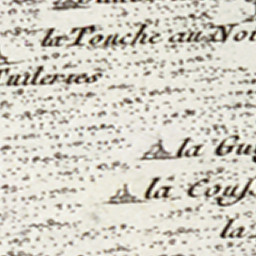 la Touche au No
Tuileries
la Gu
la Couss
la